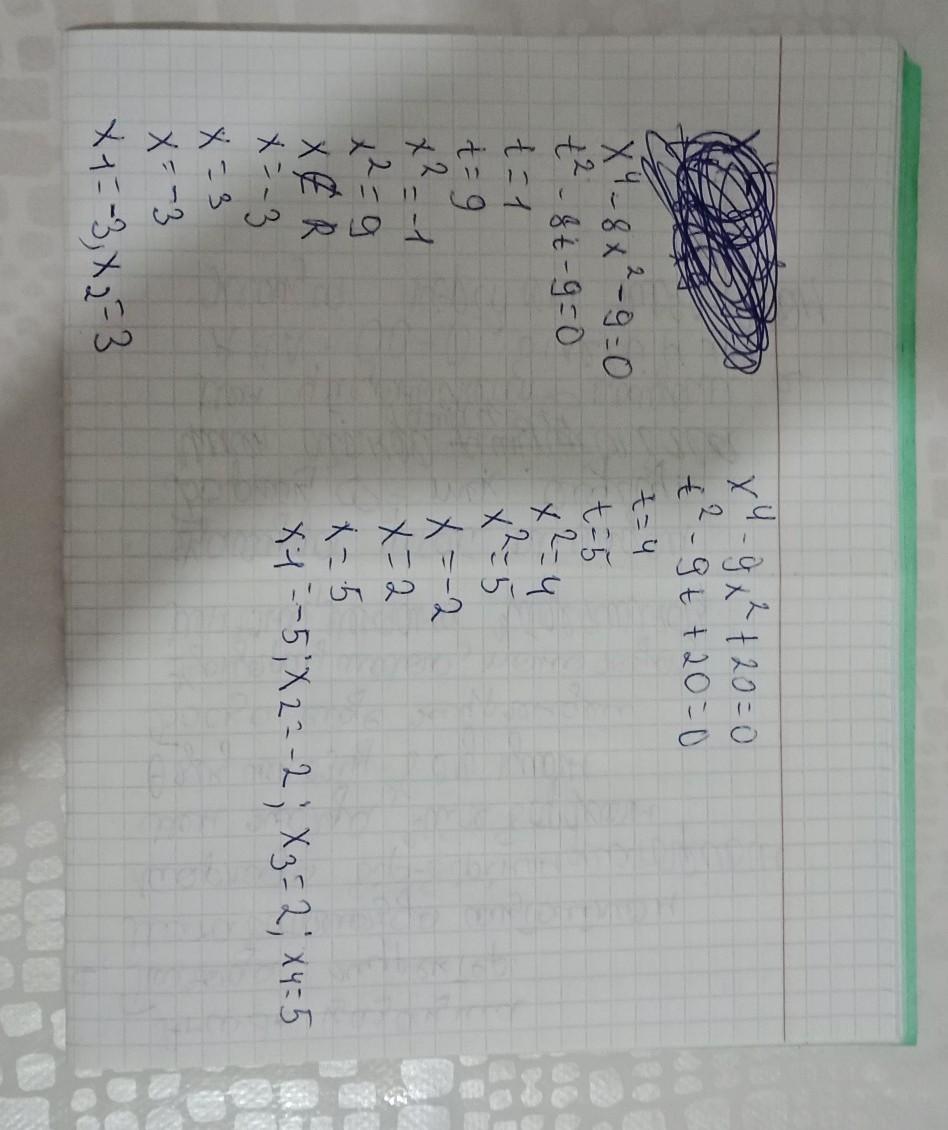 x⁴-8x²-9=0
t²-8t-9=0
t=-1
t=9
x²=-1
x²=9
x∉R
x=-3
x=3
x=-3
x1=-3, x2=3
x⁴-9x²+20=0
t²-9t+20=0
t=4
t=5
x²=4
x²=5
x=-2
x=2
x=5
x1=-5; x2=-2; x3=2; x4=5